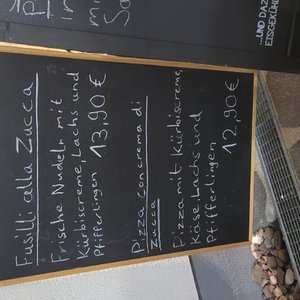 Fusilli alla Zucca
Frische Nudeln mit
Kürbiscreme, Lachs und
Pfifferlingen 13,90 €
Pizza con crema di
zucca
Pizza mit Kürbiscreme,
Käse Lachs und
Pfifferlingen
12,90 €
...UND DAZ
EISGEKÜHL